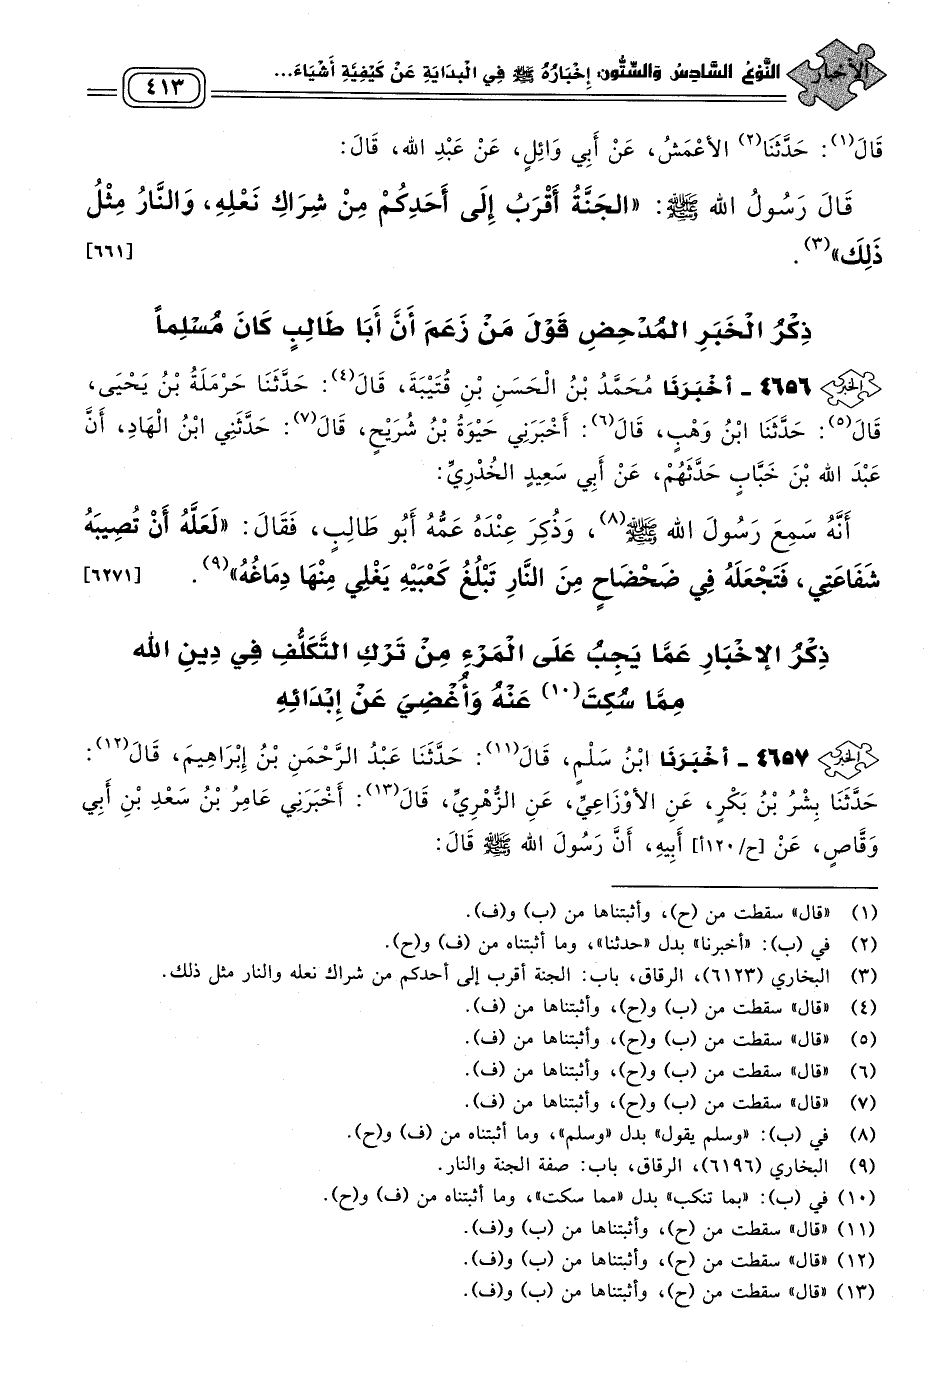 الأخبار
النَّوْعُ السَّادِسُ وَالسِّتُّونَ: إِخْبَارُهُ ﷺ فِي الْبِدَايَةِ عَنْ كَيْفِيَّةِ أَشْيَاءَ...
٤١٣
قَالَ(١): حَدَّثَنَا(٢) الأَعْمَشُ، عَنْ أَبِي وَائِلٍ، عَنْ عَبْدِ الله، قَالَ:
قَالَ رَسُولُ الله ﷺ: «الجَنَّةُ أَقْرَبُ إِلَى أَحَدِكُمْ مِنْ شِرَاكِ نَعْلِهِ، وَالنَّارُ مِثْلُ
ذَلِكَ»(٣). [٦٦١]
ذِكْرُ الْخَبَرِ المُدْحِضِ قَوْلَ مَنْ زَعَمَ أَنَّ أَبَا طَالِبٍ كَانَ مُسْلِماً
الخبر ٤٦٥٦ ـ أخْبَرَنَا مُحَمَّدُ بْنُ الْحَسَنِ بْنِ قُتَيْبَةَ، قَالَ(٤): حَدَّثَنَا حَرْمَلَةُ بْنُ يَحْيَى،
قَالَ(٥): حَدَّثَنَا ابْنُ وَهْبٍ، قَالَ(٦): أَخْبَرَنِي حَيْوَةُ بْنُ شُرَيْحٍ، قَالَ(٧): حَدَّثَنِي ابْنُ الْهَادِ، أَنَّ
عَبْدَ الله بْنَ خَبَّابٍ حَدَّثَهُمْ، عَنْ أَبِي سَعِيدٍ الخُدْرِيِّ:
أَنَّهُ سَمِعَ رَسُولَ الله ﷺ(٨)، وَذُكِرَ عِنْدَهُ عَمُّهُ أَبُو طَالِبٍ، فَقَالَ: «لَعَلَّهُ أَنْ تُصِيبَهُ
شَفَاعَتِي، فَتَجْعَلَهُ فِي ضَحْضَاحٍ مِنَ النَّارِ تَبْلُغُ كَعْبَيْهِ يَغْلِي مِنْهَا دِمَاغُهُ»(٩). [٦٢٧١]
ذِكْرُ الإخْبَارِ عَمَّا يَجِبُ عَلَى الْمَرْءِ مِنْ تَرْكِ التَّكَلُّفِ فِي دِينِ الله
مِمَّا سُكِتَ(١٠) عَنْهُ وَأُغْضِيَ عَنْ إِبْدَائِهِ
الخبر ٤٦٥٧ ـ أخْبَرَنَا ابْنُ سَلْمٍ، قَالَ(١١): حَدَّثَنَا عَبْدُ الرَّحْمَنِ بْنُ إِبْرَاهِيمَ، قَالَ(١٢):
حَدَّثَنَا بِشْرُ بْنُ بَكْرٍ، عَنِ الأَوْزَاعِيِّ، عَنِ الزُّهْرِيِّ، قَالَ(١٣): أَخْبَرَنِي عَامِرُ بْنُ سَعْدِ بْنِ أَبِي
وَقَّاصٍ، عَنْ [ح/١٢٠أ] أَبِيهِ، أَنَّ رَسُولَ الله ﷺ قَالَ:
(١) «قال» سقطت من (ح)، وأثبتناها من (ب) و(ف).
(٢) في (ب): «أخبرنا» بدل «حدثنا»، وما أثبتناه من (ف) و(ح).
(٣) البخاري (٦١٢٣)، الرقاق، باب: الجنة أقرب إلى أحدكم من شراك نعله والنار مثل ذلك.
(٤) «قال» سقطت من (ب) و(ح)، وأثبتناها من (ف).
(٥) «قال» سقطت من (ب) و(ح)، وأثبتناها من (ف).
(٦) «قال» سقطت من (ب) و(ح)، وأثبتناها من (ف).
(٧) «قال» سقطت من (ب) و(ح)، وأثبتناها من (ف).
(٨) في (ب): «وسلم يقول» بدل «وسلم»، وما أثبتناه من (ف) و(ح).
(٩) البخاري (٦١٩٦)، الرقاق، باب: صفة الجنة والنار.
(١٠) في (ب): «بما تنكب» بدل «مما سكت»، وما أثبتناه من (ف) و(ح).
(١١) «قال» سقطت من (ح)، وأثبتناها من (ب) و(ف).
(١٢) «قال» سقطت من (ح)، وأثبتناها من (ب) و(ف).
(١٣) «قال» سقطت من (ح)، وأثبتناها من (ب) و(ف).